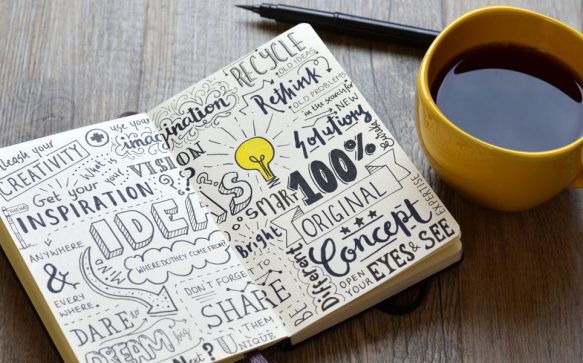 unleash your
CREATIVITY
use your
imagination
what is
your
VISION
Get your
INSPIRATION
ANYWHERE
&
EVERY
WHERE
IDEAS
WHERE DO THEY COME FROM?
DARE to
DREAM big
DON'T FORGET TO
SHARE
THEM
UNIQUE
RECYCLE
OLD IDEAS
Rethink
OLD PROBLEMS
in the search for
NEW
Solutions
smart
bright
100%
ORIGINAL
Concept
EXPERTISE
Different
BE
OPEN
your
EYES & SEE